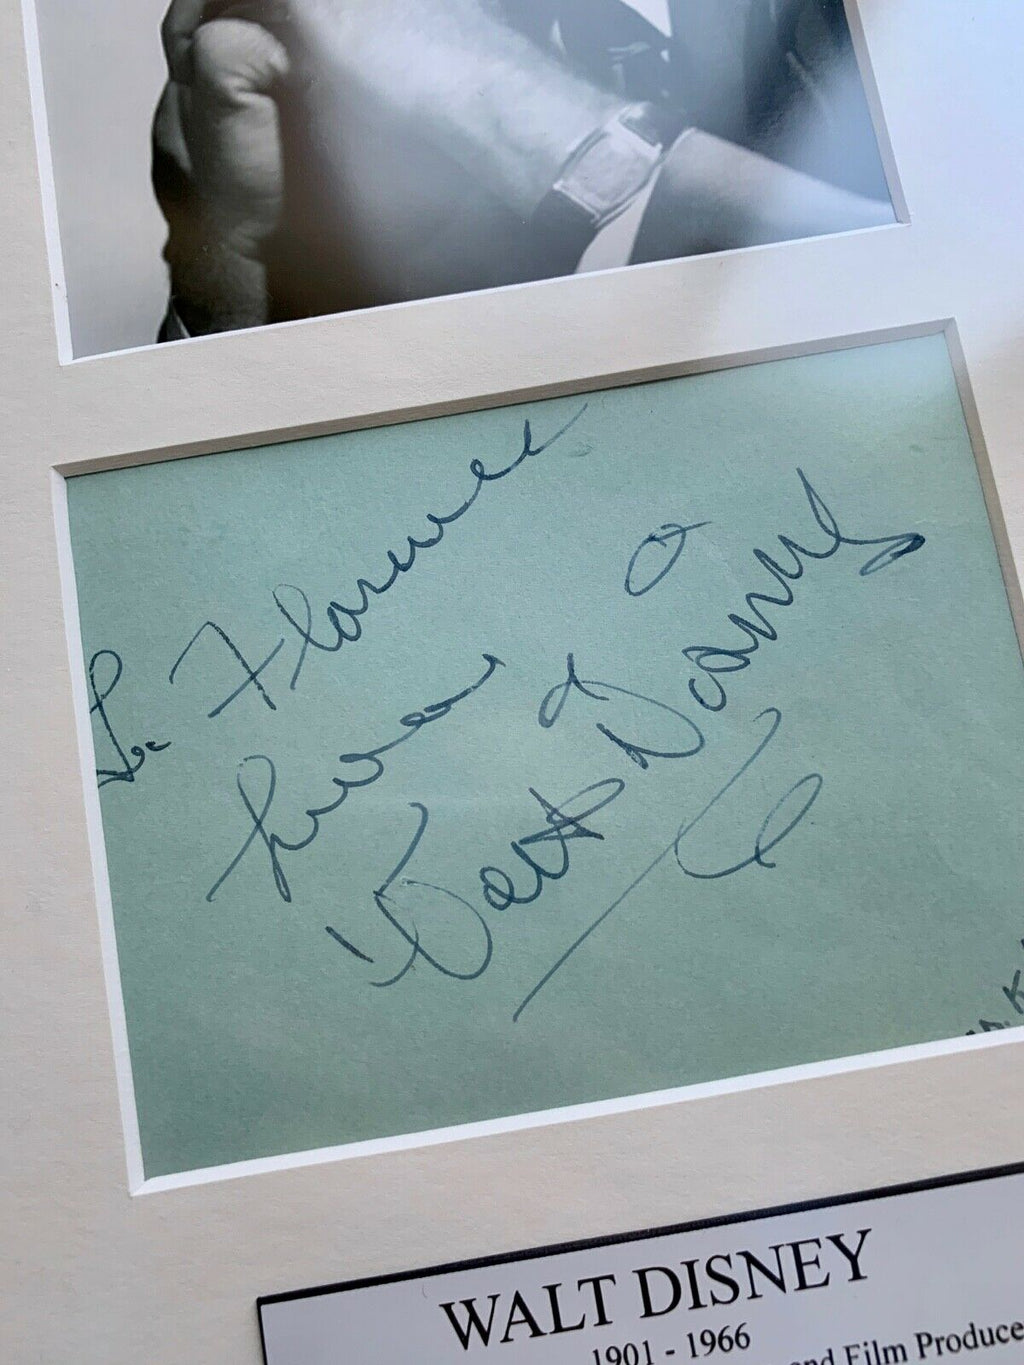 To Florence
Walt Disney
WALT DISNEY
1901 - 1966
Film Produce